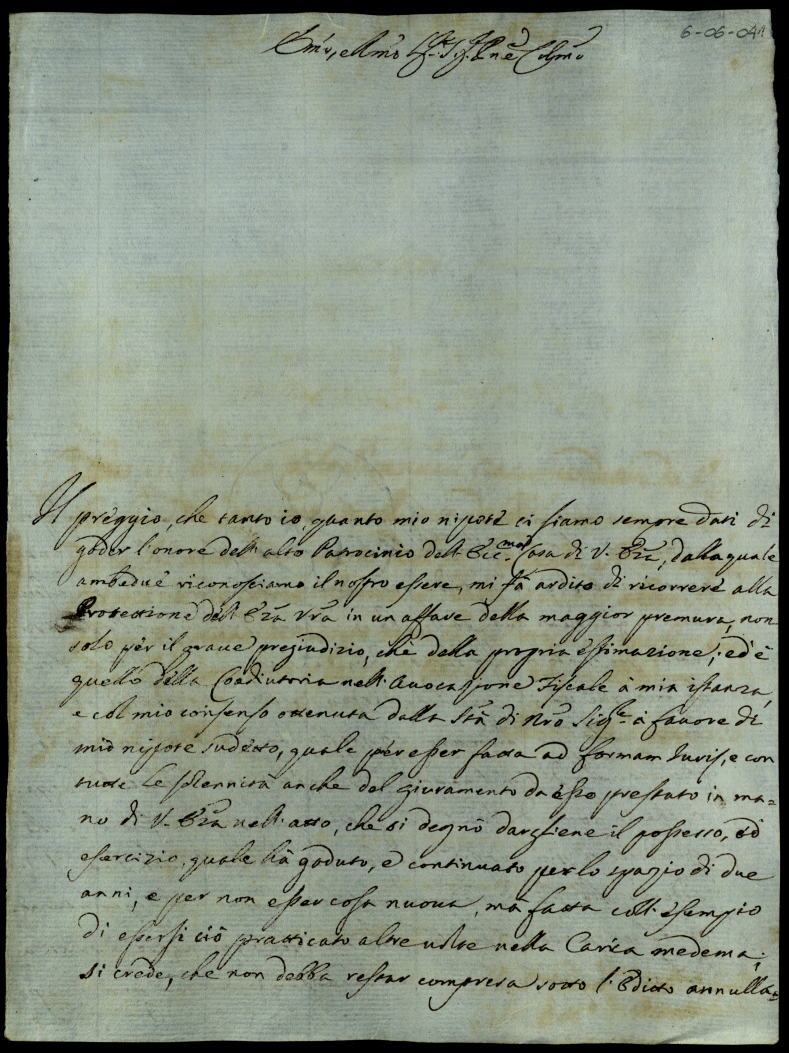 6-06-041
Em̃o, e Rmõ Sig.r Sig.r Pne Colmo
Il preggio, che tanto io, quanto mio nipote ci siamo sempre dati di
goder l'onore dell'alto Patrocinio dell'Ecc.ma Casa di V. Em̃a, dalla quale
ambedue riconosciamo il nostro essere, mi fà ardito di ricorrere alla
Protettione dell'Em̃a Vr̃a in un affare della maggior premura, non
solo per il graue pregiudizio, che della propria estimazione; ed è
quello della Coadiutoria nell'Auocazione Fiscale à mia istanza,
e col mio consenso ottenuta dalla Stà di Nro Sig.re à fauore di
mio nipote sudetto, quale per esser fatta ad formam Iuris, e con
tutte le solennità anche del giuramento da esso prestato in ma=
no di V. Em̃a nell'atto, che si degnò dargliene il possesso, ed
esercizio, quale hà goduto, e continuato per lo spazio di due
anni, e per non esser cosa nuoua, mà fatta coll'esempio
di essersi ciò pratticato altre uolte nella Carica medema;
si crede, che non debba restar compresa sotto l'Editto annulla=